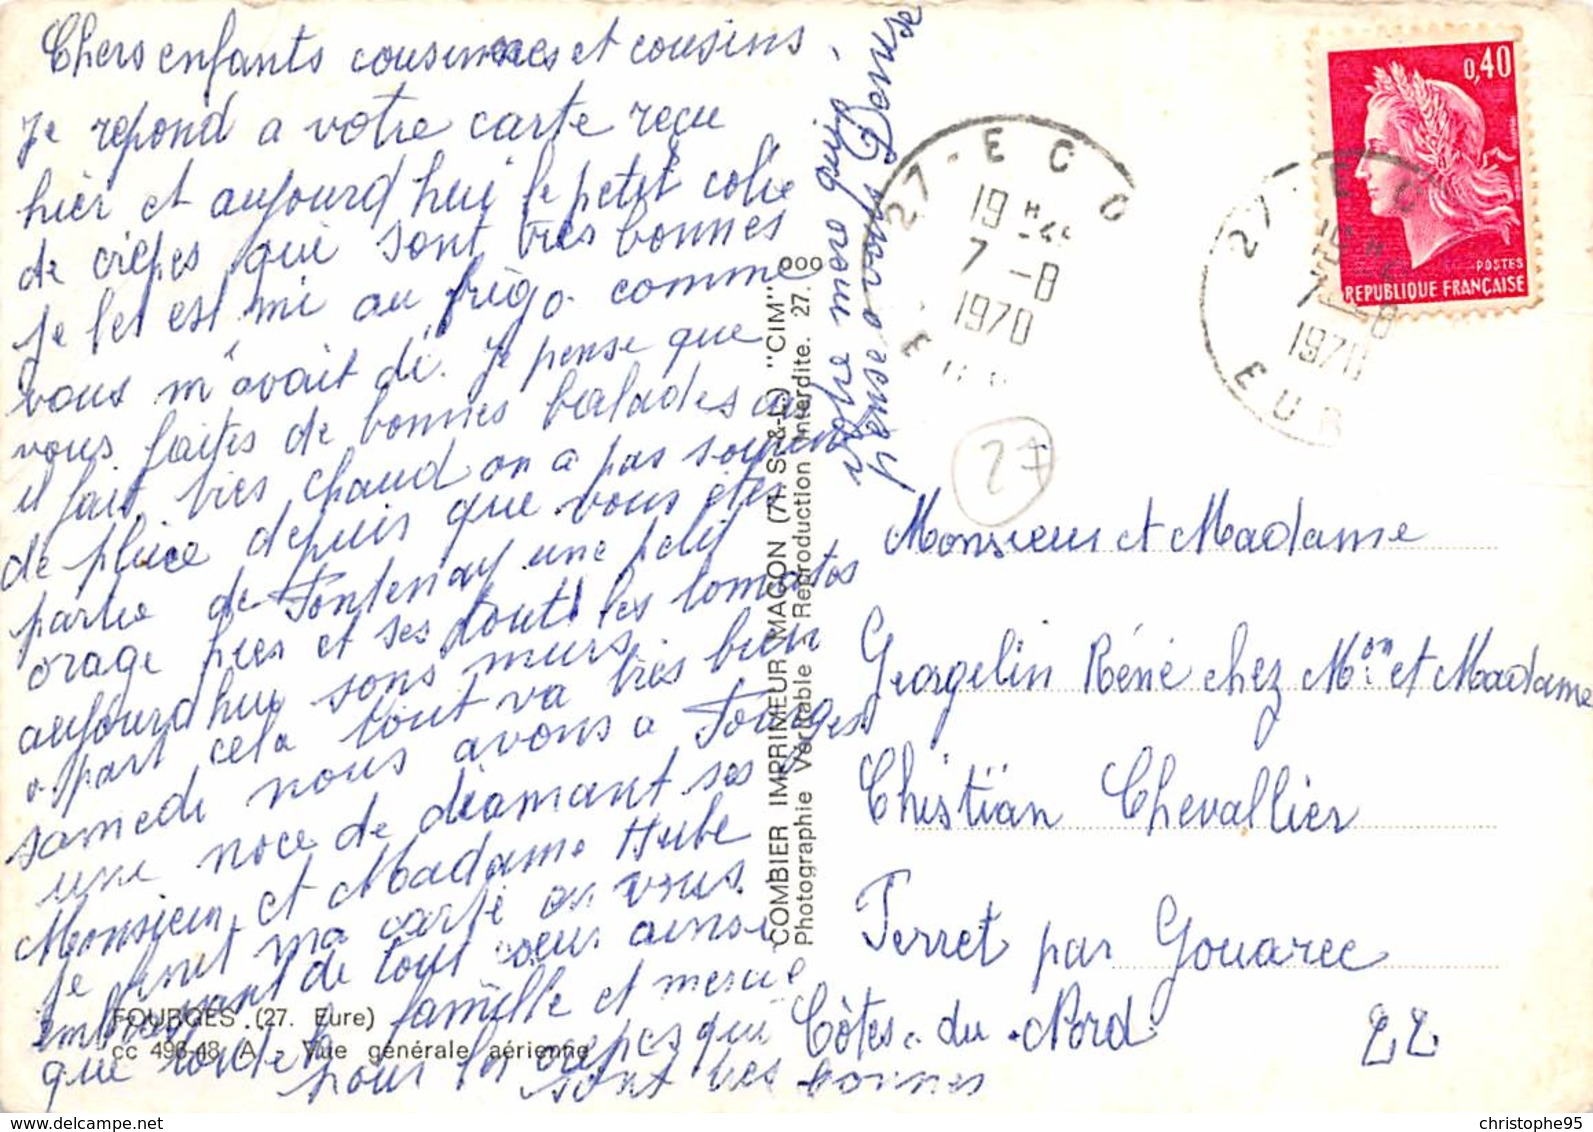 Chers enfants cousines et cousins,
Je repond a votre carte reçu
hier et aujourd hui le petit colie
de crêpes qui sont très bonnes
je les est mi au frigo comme
vous m'avait di. Je pense que
vous faites de bonnes balades ici
il fait tres chaud on a pas souvent
de pluie depuis que vous êtes
partie de Fontenay une petit
orage hier et ses tout les tomates
aujourd hui sons murs
a part cela tout va très bien
samedi nous avons a Fourges
une noce de diamant ses
Monsieur et Madame Hebe
je finit ma carte en vous
embrassant de tout cœur ainsi
que toute la famille et merci
pour les crepes qui
sont tres bonnes
votre mere qui
pense a vous Denise
FOURGES (27. Eure)
cc 496-48 A - Vue générale aérienne
COMBIER IMPRIMEUR MACON (71. S.-&-L.) "CIM"
Photographie Véritable - Reproduction Interdite. 27. 000
27 - ECO
19 H 45
7 -8
1970
EUR
27 - EC
7 -8
1970
EUR
0,40
POSTES
REPUBLIQUE FRANÇAISE
27
Monsieur et Madame
Georgelin Réné chez Mon et Madame
Christian Chevallier
Perret par Gouarec
Côtes-du-Nord
22
christophe95